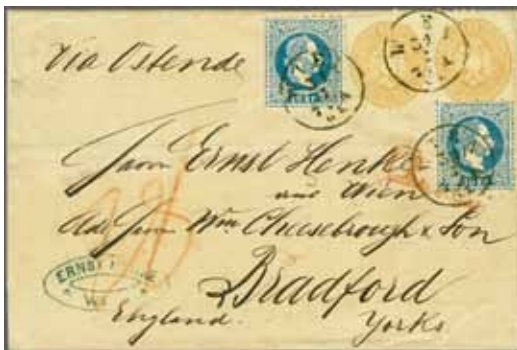 via Ostende
Herrn Ernst Henk
aus Wien
Adr Herrn Wm Cheesebrough & Son
Bradford
England.
Yorks
ERNST